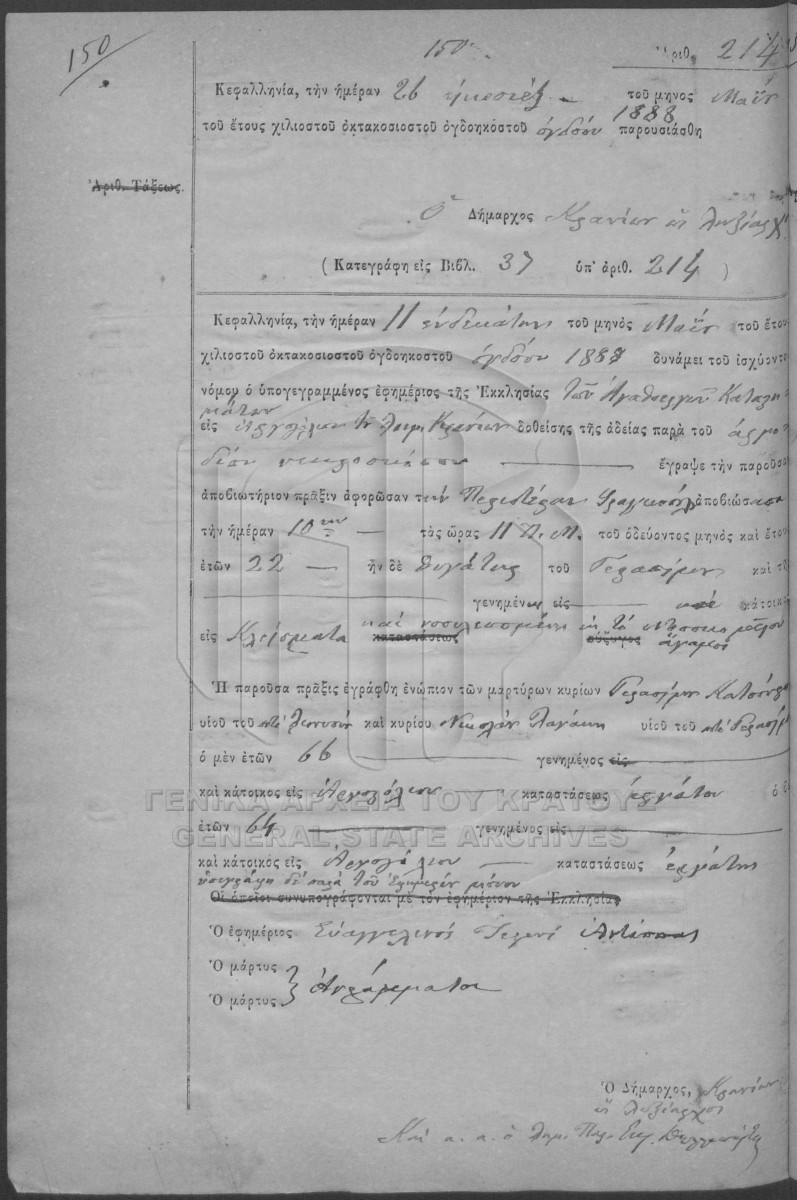 150
150 Ἀριθ. 214
Κεφαλληνία, τὴν ἡμέραν 26 εἰκοστὴν ἕξ τοῦ μηνος Μαΐου
τοῦ ἔτους χιλιοστοῦ ὀκτακοσιοστοῦ ὀγδοηκοστοῦ ὀγδόου 1888 παρουσιάσθη
Ἀριθ. Τάξεως.
Ὁ Δήμαρχος Κρανίων ὡς ληξίαρχος
(Κατεγράφη εἰς Βιβλ. 37 ὑπ' ἀριθ. 214)
Κεφαλληνία, τὴν ἡμέραν 11 ἑνδεκάτην τοῦ μηνὸς Μαΐου τοῦ ἔτου
χιλιοστοῦ ὀκτακοσιοστοῦ ὀγδοηκοστοῦ ὀγδόου 1888 δυνάμει τοῦ ἰσχύοντο
νόμου ὁ ὑπογεγραμμένος ἐφημέριος τῆς Ἐκκλησίας τῶν Ἀγαθοεργῶν Καταστη
μάτων
εἰς Ἀργοστόλιον τοῦ Δήμ. Κρανίων δοθείσης τῆς ἀδείας παρὰ τοῦ ἁρμο
δίου νεκροσκόπου ἔγραψε τὴν παροῦσα
ἀποβιωτήριον πρᾶξιν ἀφορῶσαν τὴν Περιστέραν ἀποβιώσασα
τὴν ἡμέραν 10ην τὰς ὥρας 11 Π.Μ. τοῦ ὁδεύοντος μηνὸς καὶ ἔτου
ἐτῶν 22 ἦν δὲ θυγάτηρ τοῦ Γερασίμου καὶ τῆ
γενημένην εἰς καὶ κάτοικο
εἰς Κλείσματα καταστάσεως καὶ νοσηλευομένη εἰς τὸ σύζυγος ἄγαμος
Ἡ παροῦσα πρᾶξις ἐγράφθη ἐνώπιον τῶν μαρτύρων κυρίων Γερασίμου
υἱοῦ τοῦ ποτὲ Διονυσίου καὶ κυρίου Νικολάου υἱοῦ τοῦ ποτὲ Γερασίμ
ὁ μὲν ἐτῶν 66 γενημένος εἰς
καὶ κάτοικος εἰς Ἀργοστόλιον καταστάσεως ἐργάτου ὁ δ
ἐτῶν 64 γενημένος εἰς
καὶ κάτοικὸς εἰς Ἀργοστόλιον καταστάσεως ἐργάτης
ὑπεγράφη δὲ παρὰ τοῦ ἐφημερίου μόνον
Οἱ ὁποῖοι συνυπογράφονται μὲ τὸν ἐφημέριον τῆς Ἐκκλησίας
Ὁ ἐφημέριος Εὐαγγελινὸς
Ὁ μάρτυς
Ὁ μάρτυς
Ἀγράμματοι
Ὁ Δήμαρχος, Κρανίων
ὡς ληξίαρχος
ΓΕΝΙΚΑ ΑΡΧΕΙΑ ΤΟΥ ΚΡΑΤΟΥΣ
GENERAL STATE ARCHIVES